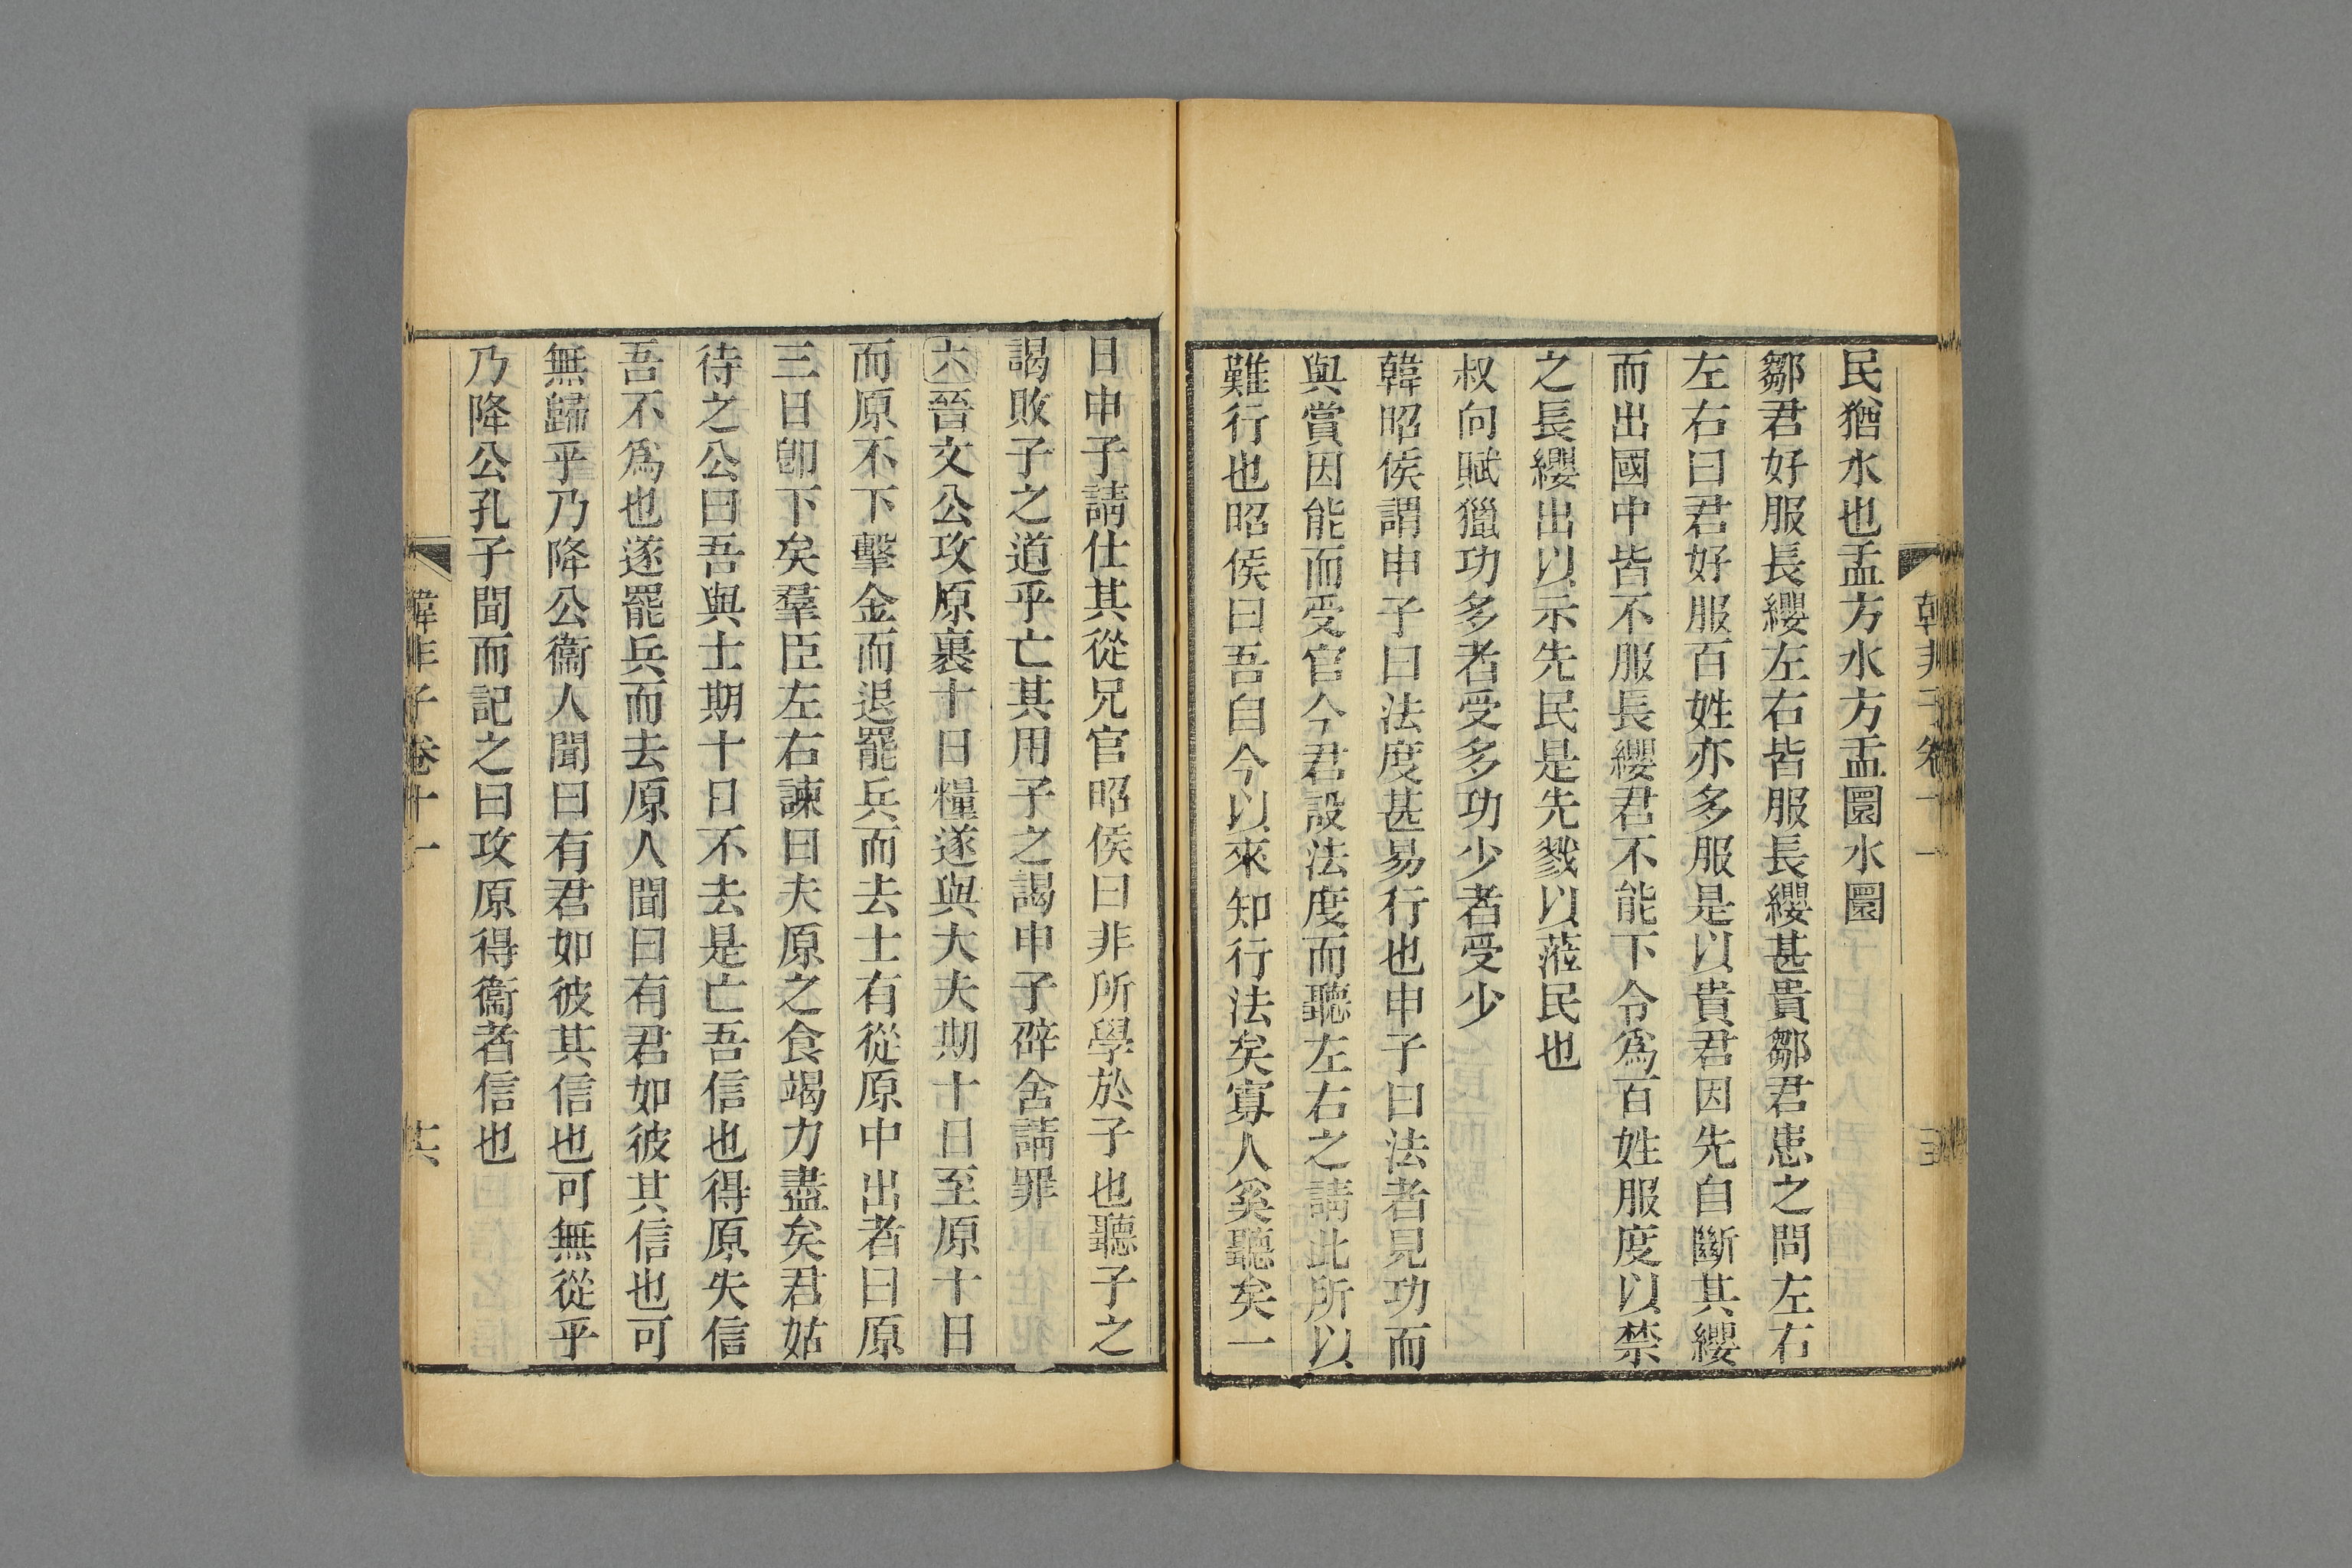 民猶水也盂方水方盂圜水圜
鄒君好服長纓左右皆服長纓甚貴鄒君患之問左右
左右曰君好服百姓亦多服是以貴君因先自斷其纓
而出國中皆不服長纓君不能下令爲百姓服度以禁
之長纓出以示先民是先戮以蒞民也
叔向賦獵功多者受多功少者受少
韓昭侯謂申子曰法度甚易行也申子曰法者見功而
與賞因能而受官今君設法度而聽左右之請此所以
難行也昭侯曰吾自今以來知行法矣寡人奚聽矣一
日申子請仕其從兄官昭侯曰非所學於子也聽子之
謁敗子之道乎亡其用子之謁申子辟舍請罪
六晉文公攻原裹十日糧遂與大夫期十日至原十日
而原不下擊金而退罷兵而去士有從原中出者曰原
三日卽下矣羣臣左右諫曰夫原之食竭力盡矣君姑
待之公曰吾與士期十日不去是亡吾信也得原失信
吾不爲也遂罷兵而去原人聞曰有君如彼其信也可
無歸乎乃降公衞人聞曰有君如彼其信也可無從乎
乃降公孔子聞而記之曰攻原得衞者信也
韓非子卷十一